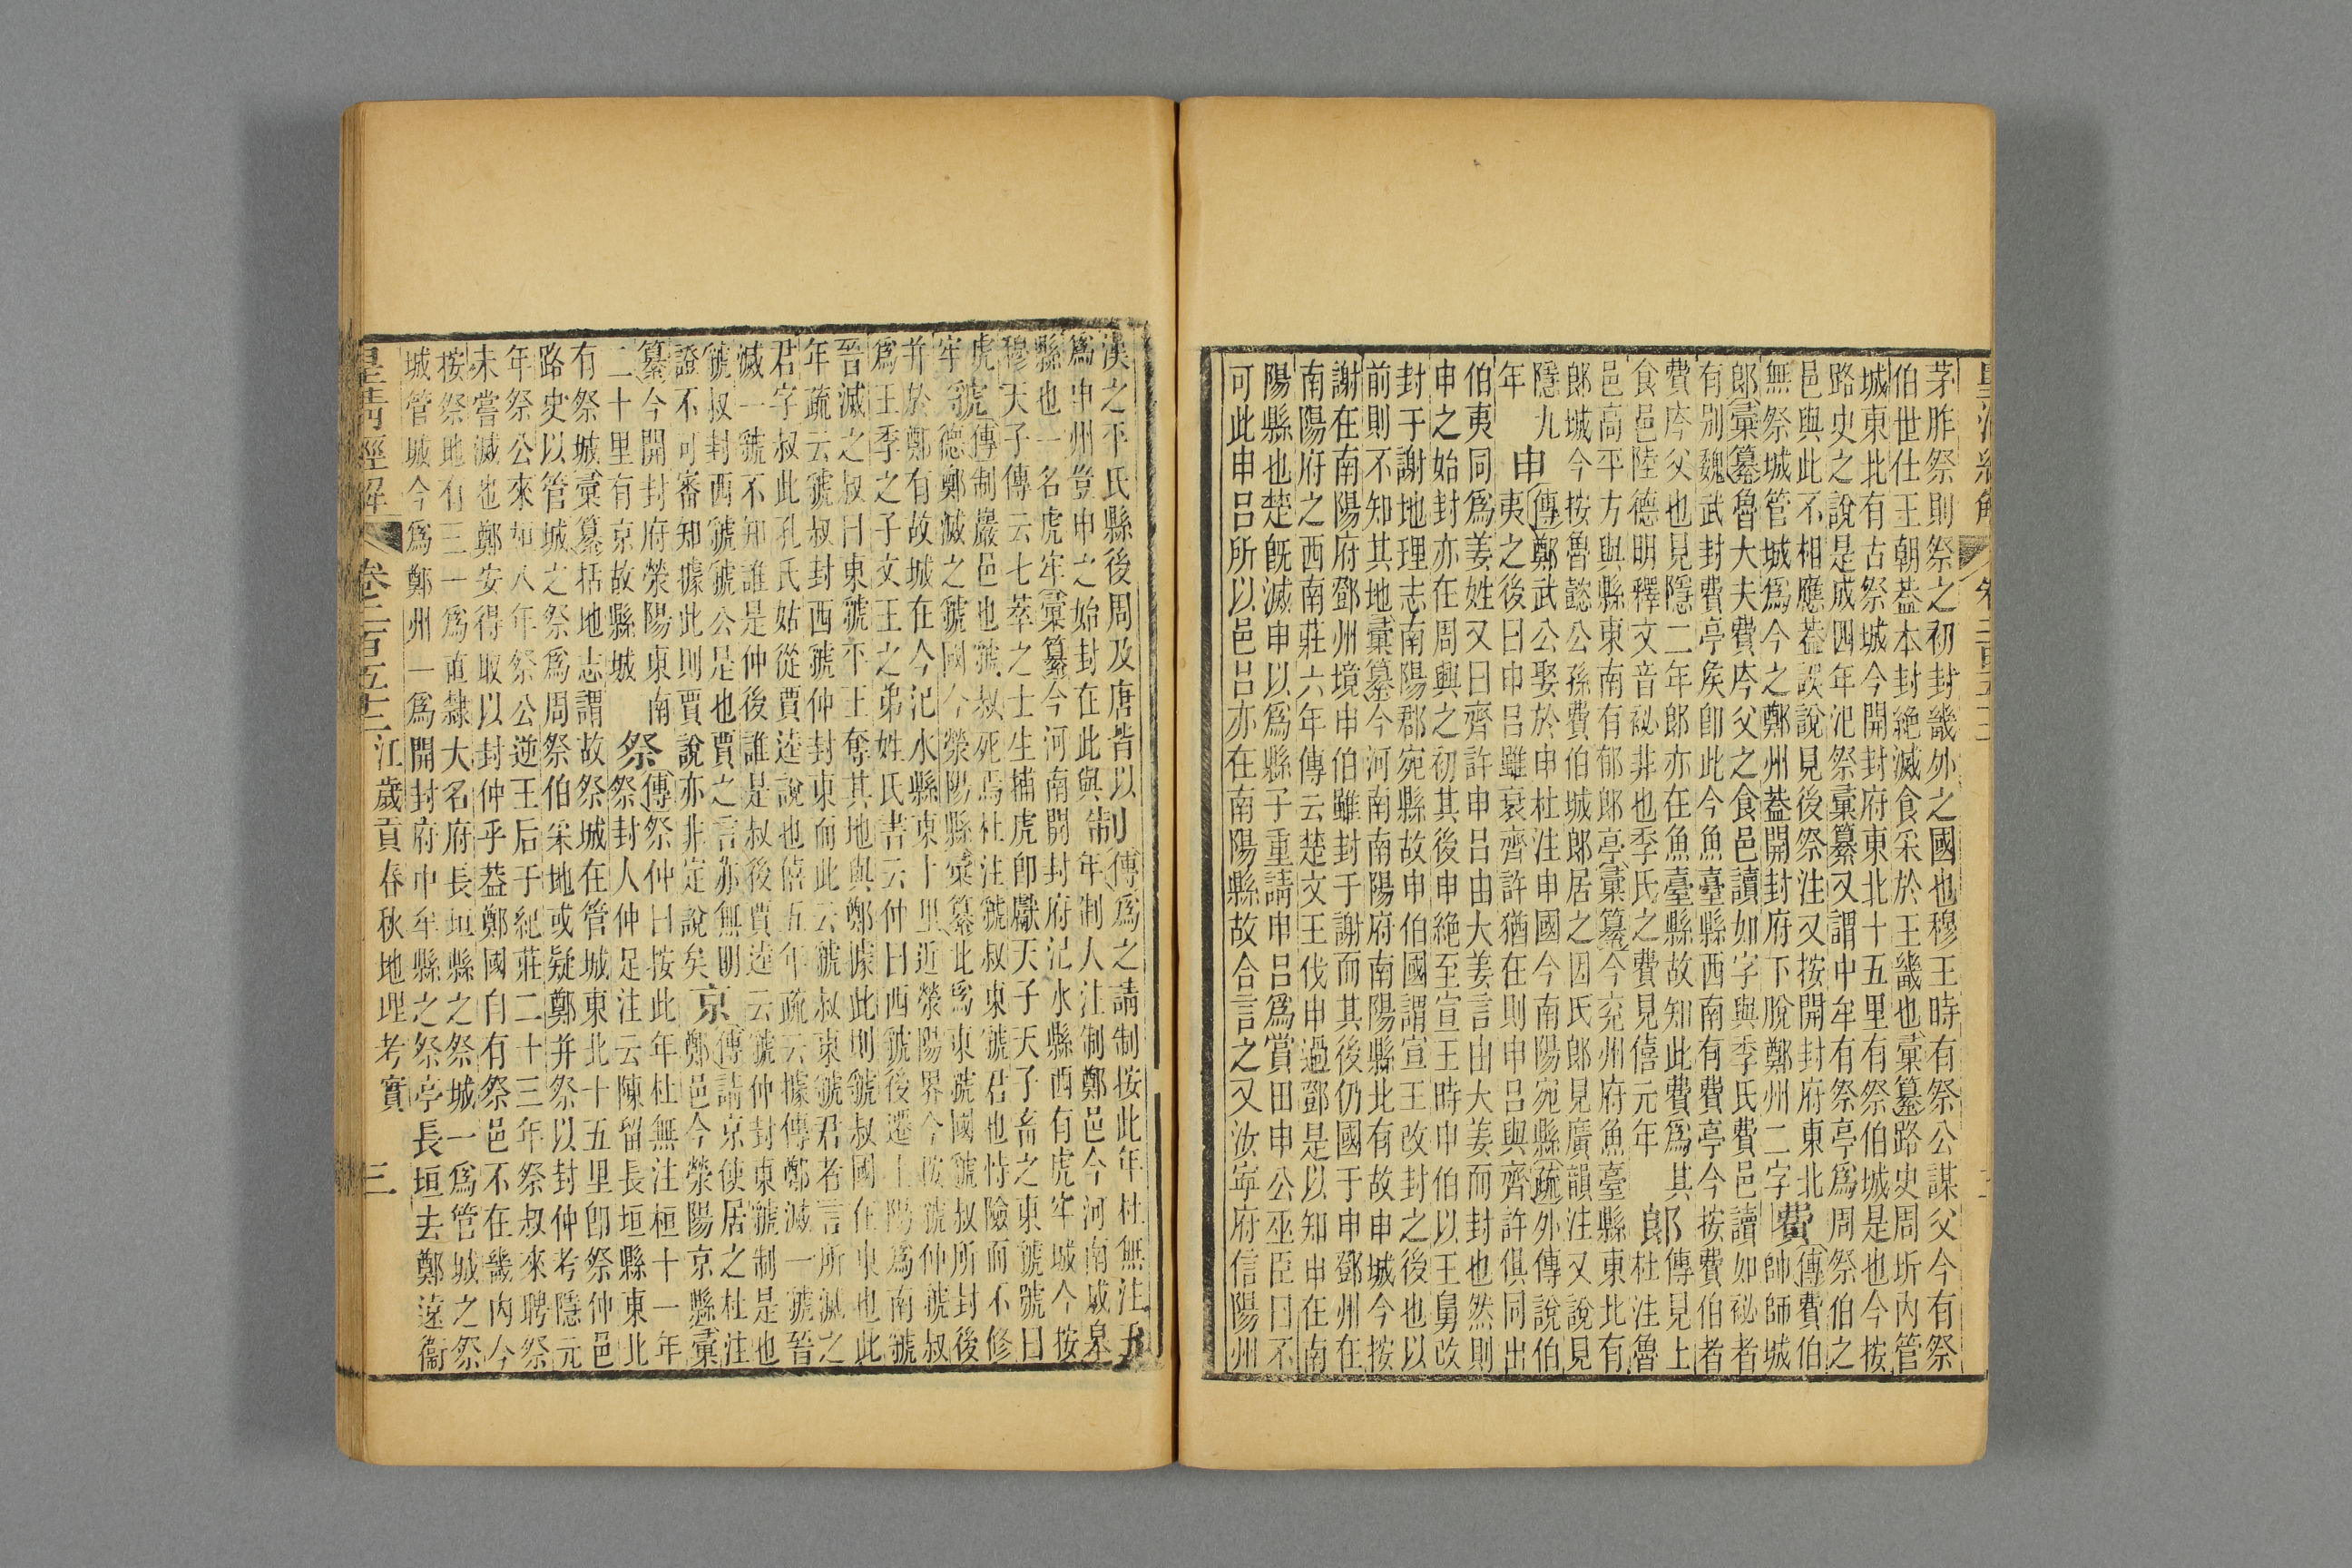 皇清經解 卷二百五十三
茅胙祭則祭之初封畿外之國也穆王時有祭公謀父今有祭
伯世仕王朝葢本封絕滅食采於王畿也彙纂路史周圻內管
城東北有古祭城今開封府東北十五里有祭伯城是也今按
路史之說是成四年氾祭彙纂又謂中牟有祭亭爲周祭伯之
邑與此不相應葢誤說見後祭注又按開封府東北 費 傳費伯
無祭城管城爲今之鄭州葢開封府下脫鄭州二字 帥師城
郎彙纂魯大夫費庈父之食邑讀如字與季氏費邑讀如祕者
有別魏武封費亭矦卽此今魚臺縣西南有費亭今按費伯者
費庈父也見隱二年郎亦在魚臺縣故知此費爲其 郎 傳見上
食邑陸德明釋文音祕非也季氏之費見僖元年 杜注魯
邑高平方與縣東南有郁郎亭彙纂今兖州府魚臺縣東北有
郎城今按魯懿公孫費伯城郎居之因氏郎見廣韻注又說見
隱九 申 傳鄭武公娶於申杜注申國今南陽宛縣疏外傳說伯
年 夷之後曰申呂雖衰齊許猶在則申呂與齊許俱同出
伯夷同爲姜姓又曰齊許申呂由大姜言由大姜而封也然則
申之始封亦在周興之初其後申絕至宣王時申伯以王舅改
封于謝地理志南陽郡宛縣故申伯國謂宣王改封之後也以
前則不知其地彙纂今河南南陽府南陽縣北有故申城今按
謝在南陽府鄧州境申伯雖封于謝而其後仍國于申鄧州在
南陽府之西南莊六年傳云楚文王伐申過鄧是以知申在南
陽縣也楚旣滅申以爲縣子重請申呂爲賞田申公巫臣曰不
可此申呂所以邑呂亦在南陽縣故合言之又汝寧府信陽州
漢之平氏縣後周及唐皆以 制 傳爲之請制按此年杜無注五
爲申州豈申之始封在此與 年制人注制鄭邑今河南成皋
縣也一名虎牢彙纂今河南開封府氾水縣西有虎牢城今按
穆天子傳云七萃之士生捕虎卽獻天子天子畜之東虢號曰
虎 虢 傳制巖邑也虢叔死焉杜注虢叔東虢君也恃險而不修
牢 德鄭滅之虢國今滎陽縣彙纂此爲東虢國虢叔所封後
幷於鄭有故城在今氾水縣東十里近滎陽界今按虢仲虢叔
爲王季之子文王之弟姓氏書云仲曰西虢後遷上陽爲南虢
晉滅之叔曰東虢平王奪其地與鄭據此則虢叔國在東也此
年疏云虢叔封西虢仲封東而此云虢叔東虢君者言所滅之
君字叔此孔氏姑從賈逵說也僖五年疏云據傳鄭滅一虢晉
滅一虢不知誰是仲後誰是叔後賈逵云虢仲封東虢制是也
虢叔封西虢虢公是也賈之言亦無明 京 傳請京使居之杜注
證不可審知據此則賈說亦非定說矣 鄭邑今滎陽京縣彙
纂今開封府滎陽東南 祭 傳祭仲曰按此年杜無注桓十一年
二十里有京故縣城 祭封人仲足注云陳留長垣縣東北
有祭城彙纂括地志謂故祭城在管城東北十五里卽祭仲邑
路史以管城之祭爲周祭伯采地或疑鄭幷祭以封仲考隱元
年祭公來如八年祭公逆王后于紀莊二十三年祭叔來聘祭
未嘗滅也鄭安得取以封仲乎葢鄭國自有祭邑不在畿內今
按祭地有三一爲直隸大名府長垣縣之祭城一爲管城之祭
城管城今爲鄭州一爲開封府中牟縣之祭亭長垣去鄭遠衞
皇清經解 卷二百五十三 江歲貢春秋地理考實 三